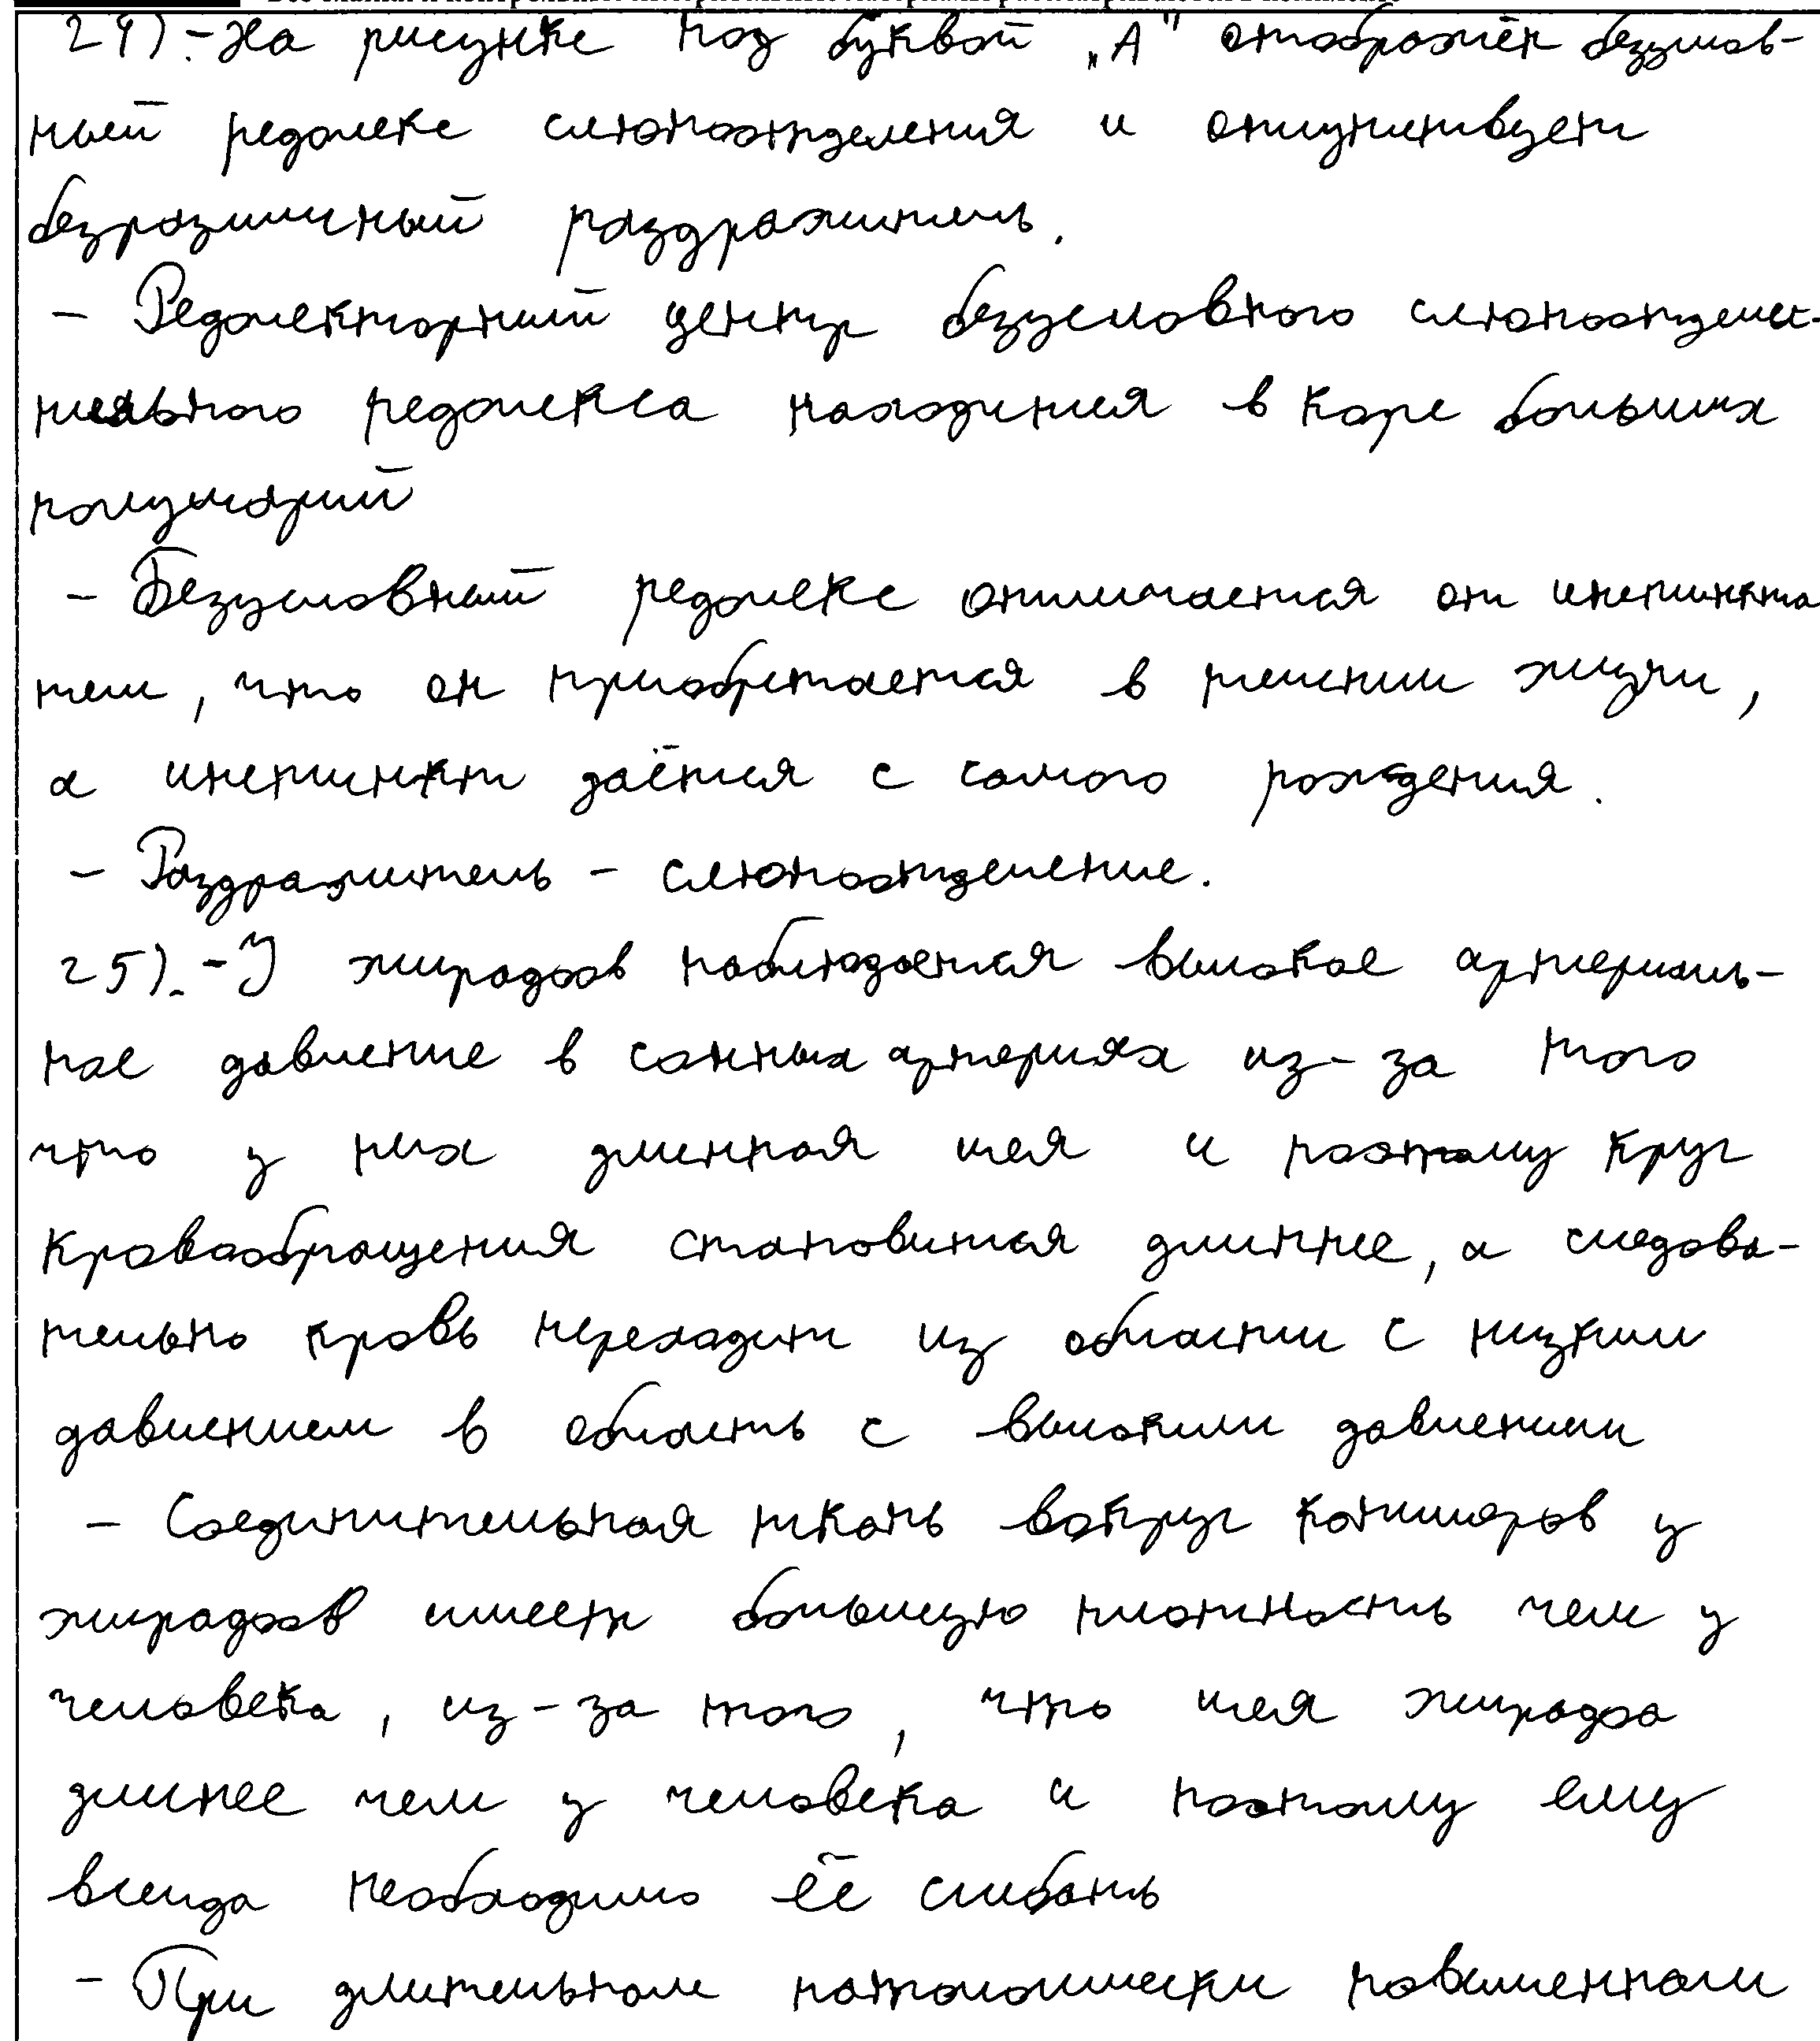 24).-На рисунке под буквой „А" отображён безуслов-
ный рефлекс слюноотделения и отсутствует
безразличный раздражитель.
- Рефлекторный центр безусловного слюноотдели-
тельного рефлекса находится в коре больших
полушарий
- Безусловный рефлекс отличается от инстинкта
тем, что он приобретается в течении жизни,
а инстинкт даётся с самого рождения.
- Раздражитель - слюноотделение.
25).-У жирафов наблюдается высокое артериаль-
ное давление в сонных артериях из-за того
что у них длинная шея и поэтому круг
кровообращения становится длиннее, а следова-
тельно кровь переходит из области с низким
давлением в область с высоким давлением
- Соединительная ткань вокруг капилляров у
жирафов имеет большую плотность чем у
человека, из-за того, что шея жирафа
длинее чем у человека и поэтому ему
всегда необходимо её сгибать
- При длительном патологически повышенном